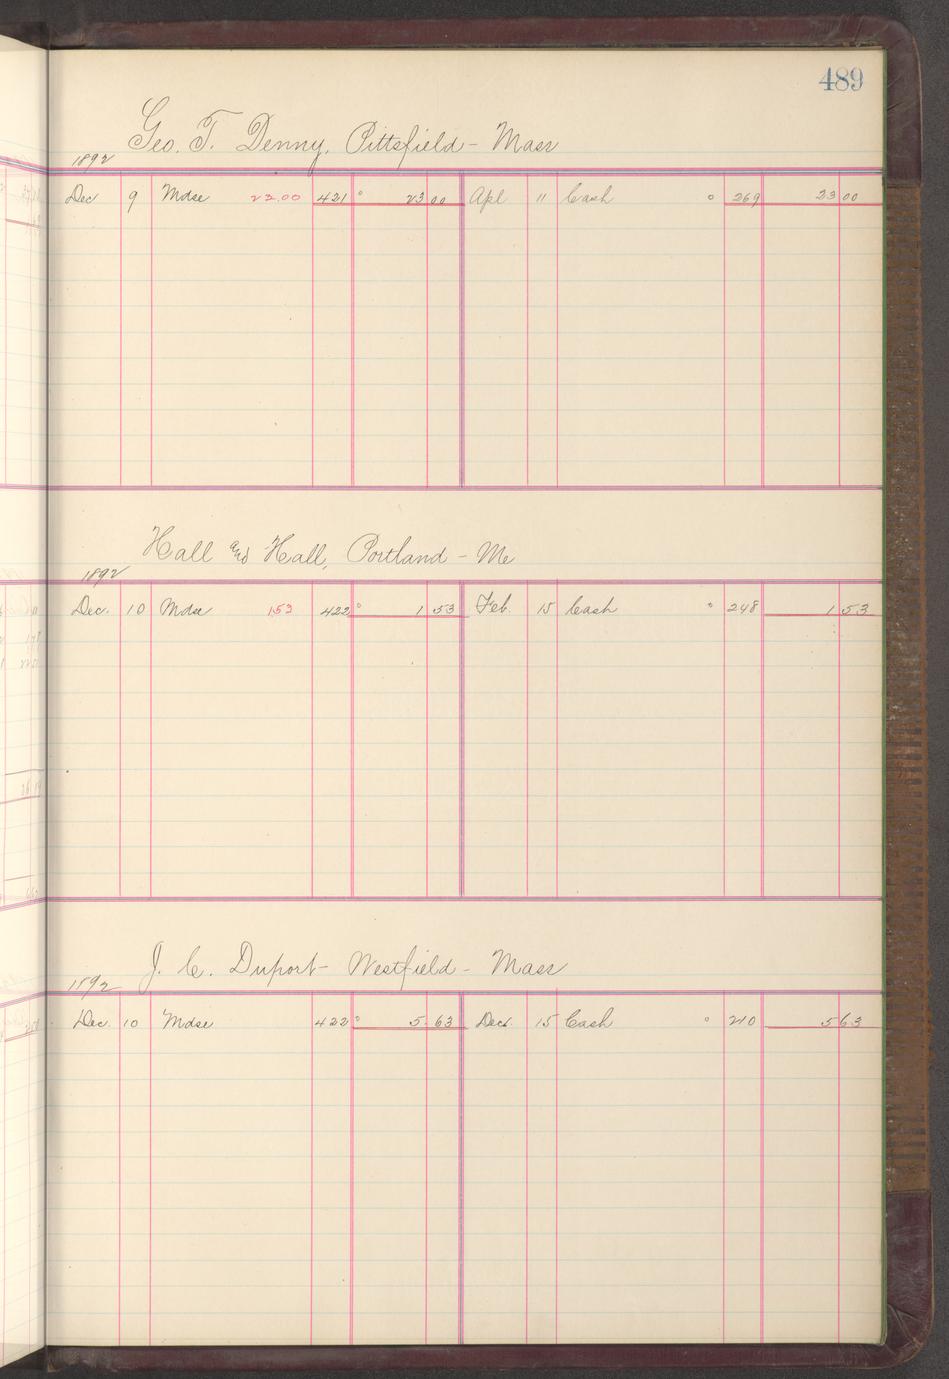 489
Geo. T. Denny, Pittsfield - Mass
1892
Dec 9 Mdse 23.00 421 23 00 Apl 11 Cash 269 23 00
Hall and Hall, Portland - Me
1892
Dec. 10 Mdse 1.53 422 1 53 Feb. 15 Cash 248 1 53
J. C. Duport - Westfield - Mass
1892
Dec. 10 Mdse 422 5.63 Dec. 15 Cash 210 5 63